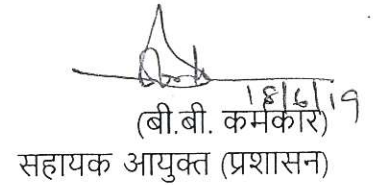 18/6/19
(बी.बी. कर्मकार)
सहायक आयुक्त (प्रशासन)